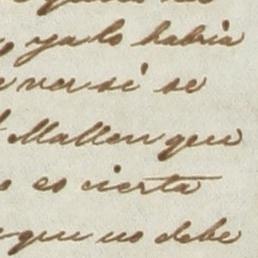 ya lo habria
ver si se
Mallen que
es cierta
que no debe